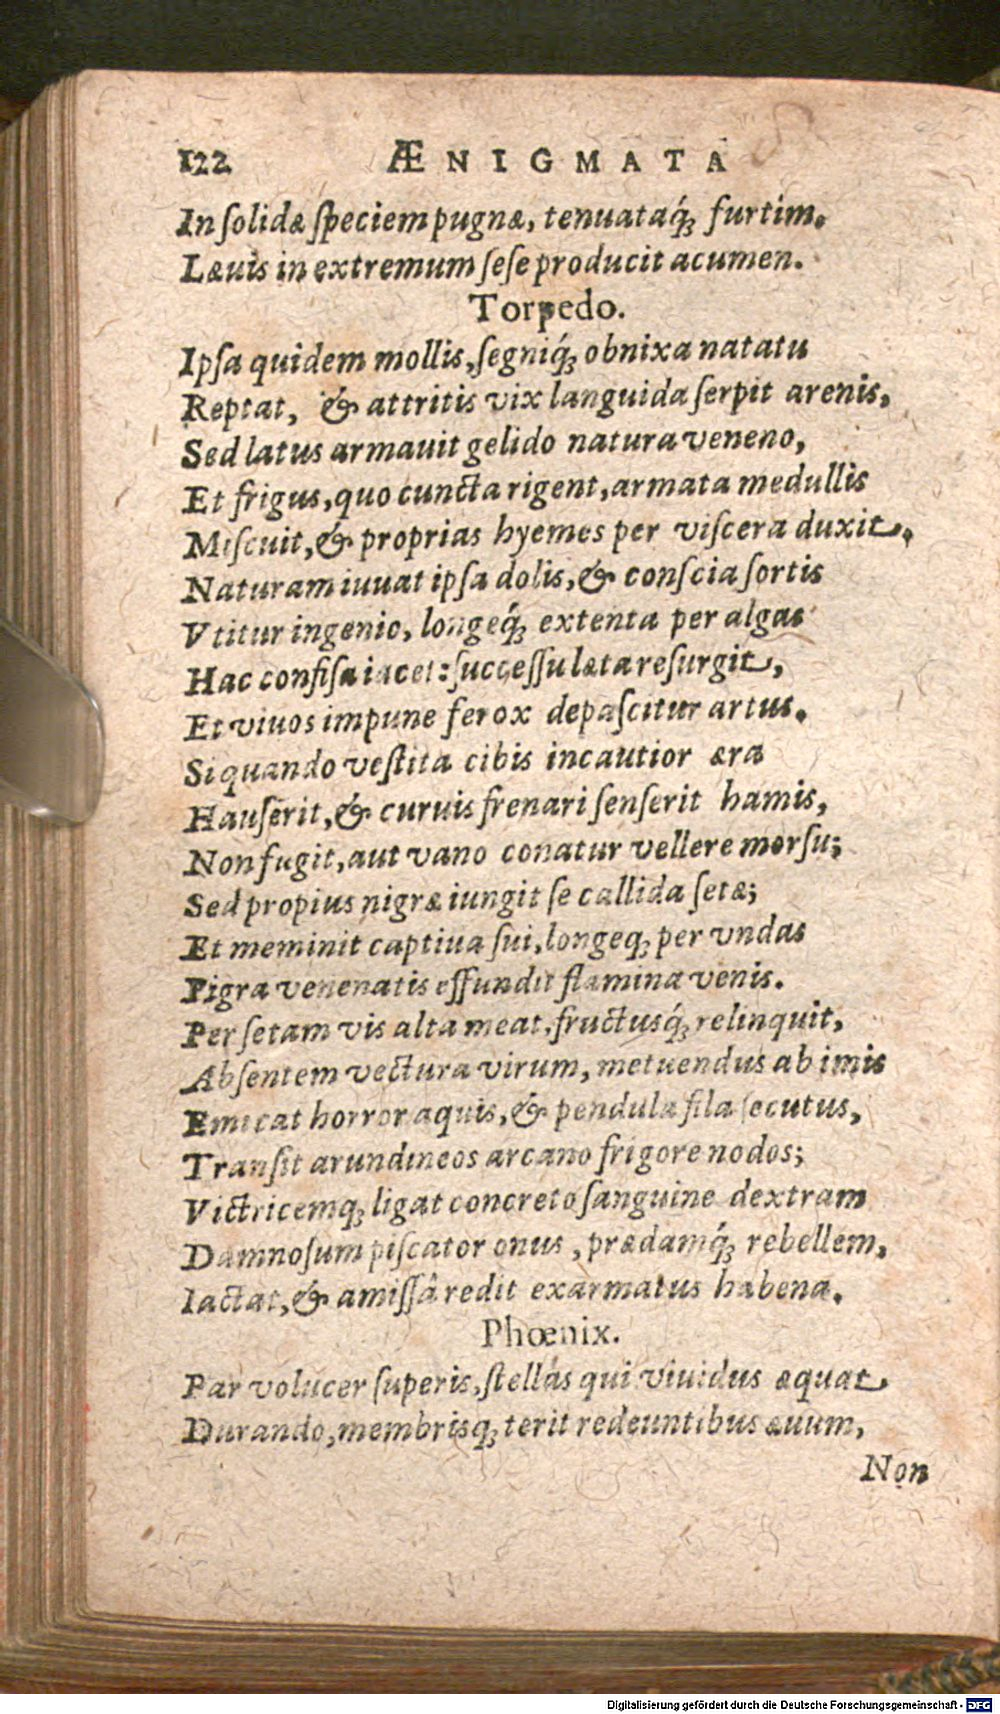 122 ÆNIGMATA
In ſolidæ ſpeciem pugnæ, tenuataq́; furtim.
Læuis in extremum ſeſe producit acumen.
Torpedo.
Ipſa quidem mollis, ſegniq́; obnixa natatu
Reptat, & attritis vix languida ſerpit arenis,
Sed latus armauit gelido natura veneno,
Et frigus, quo cuncta rigent, armata medullis
Miſcuit, & proprias hyemes per viſcera duxit.
Naturam iuuat ipſa dolis, & conſcia ſortis
Vtitur ingenio, longeq́; extenta per algas
Hac confiſa iacet: ſucceſſu læta reſurgit,
Et viuos impune ferox depaſcitur artus.
Si quando veſtita cibis incautior æra
Hauſerit, & curuis frenari ſenſerit hamis,
Non fugit, aut vano conatur vellere morſu;
Sed propius nigræ iungit ſe callida ſetæ;
Et meminit captiua ſui, longeq; per vndas
Pigra venenatis effundit flamina venis.
Per ſetam vis alta meat, fructusq́; relinquit,
Abſentem vectura virum, metuendus ab imis
Emicat horror aquis, & pendula fila ſecutus,
Tranſit arundineos arcano frigore nodos;
Victricemq; ligat concreto ſanguine dextram
Damnoſum piſcator onus, prædamq́; rebellem,
Iactat, & amiſſâ redit exarmatus habena.
Phœnix.
Par volucer ſuperis, ſtellas qui viuidus æquat
Durando, membrisq; terit redeuntibus æuum,
Non
Digitalisierung gefördert durch die Deutsche Forschungsgemeinschaft - DFG